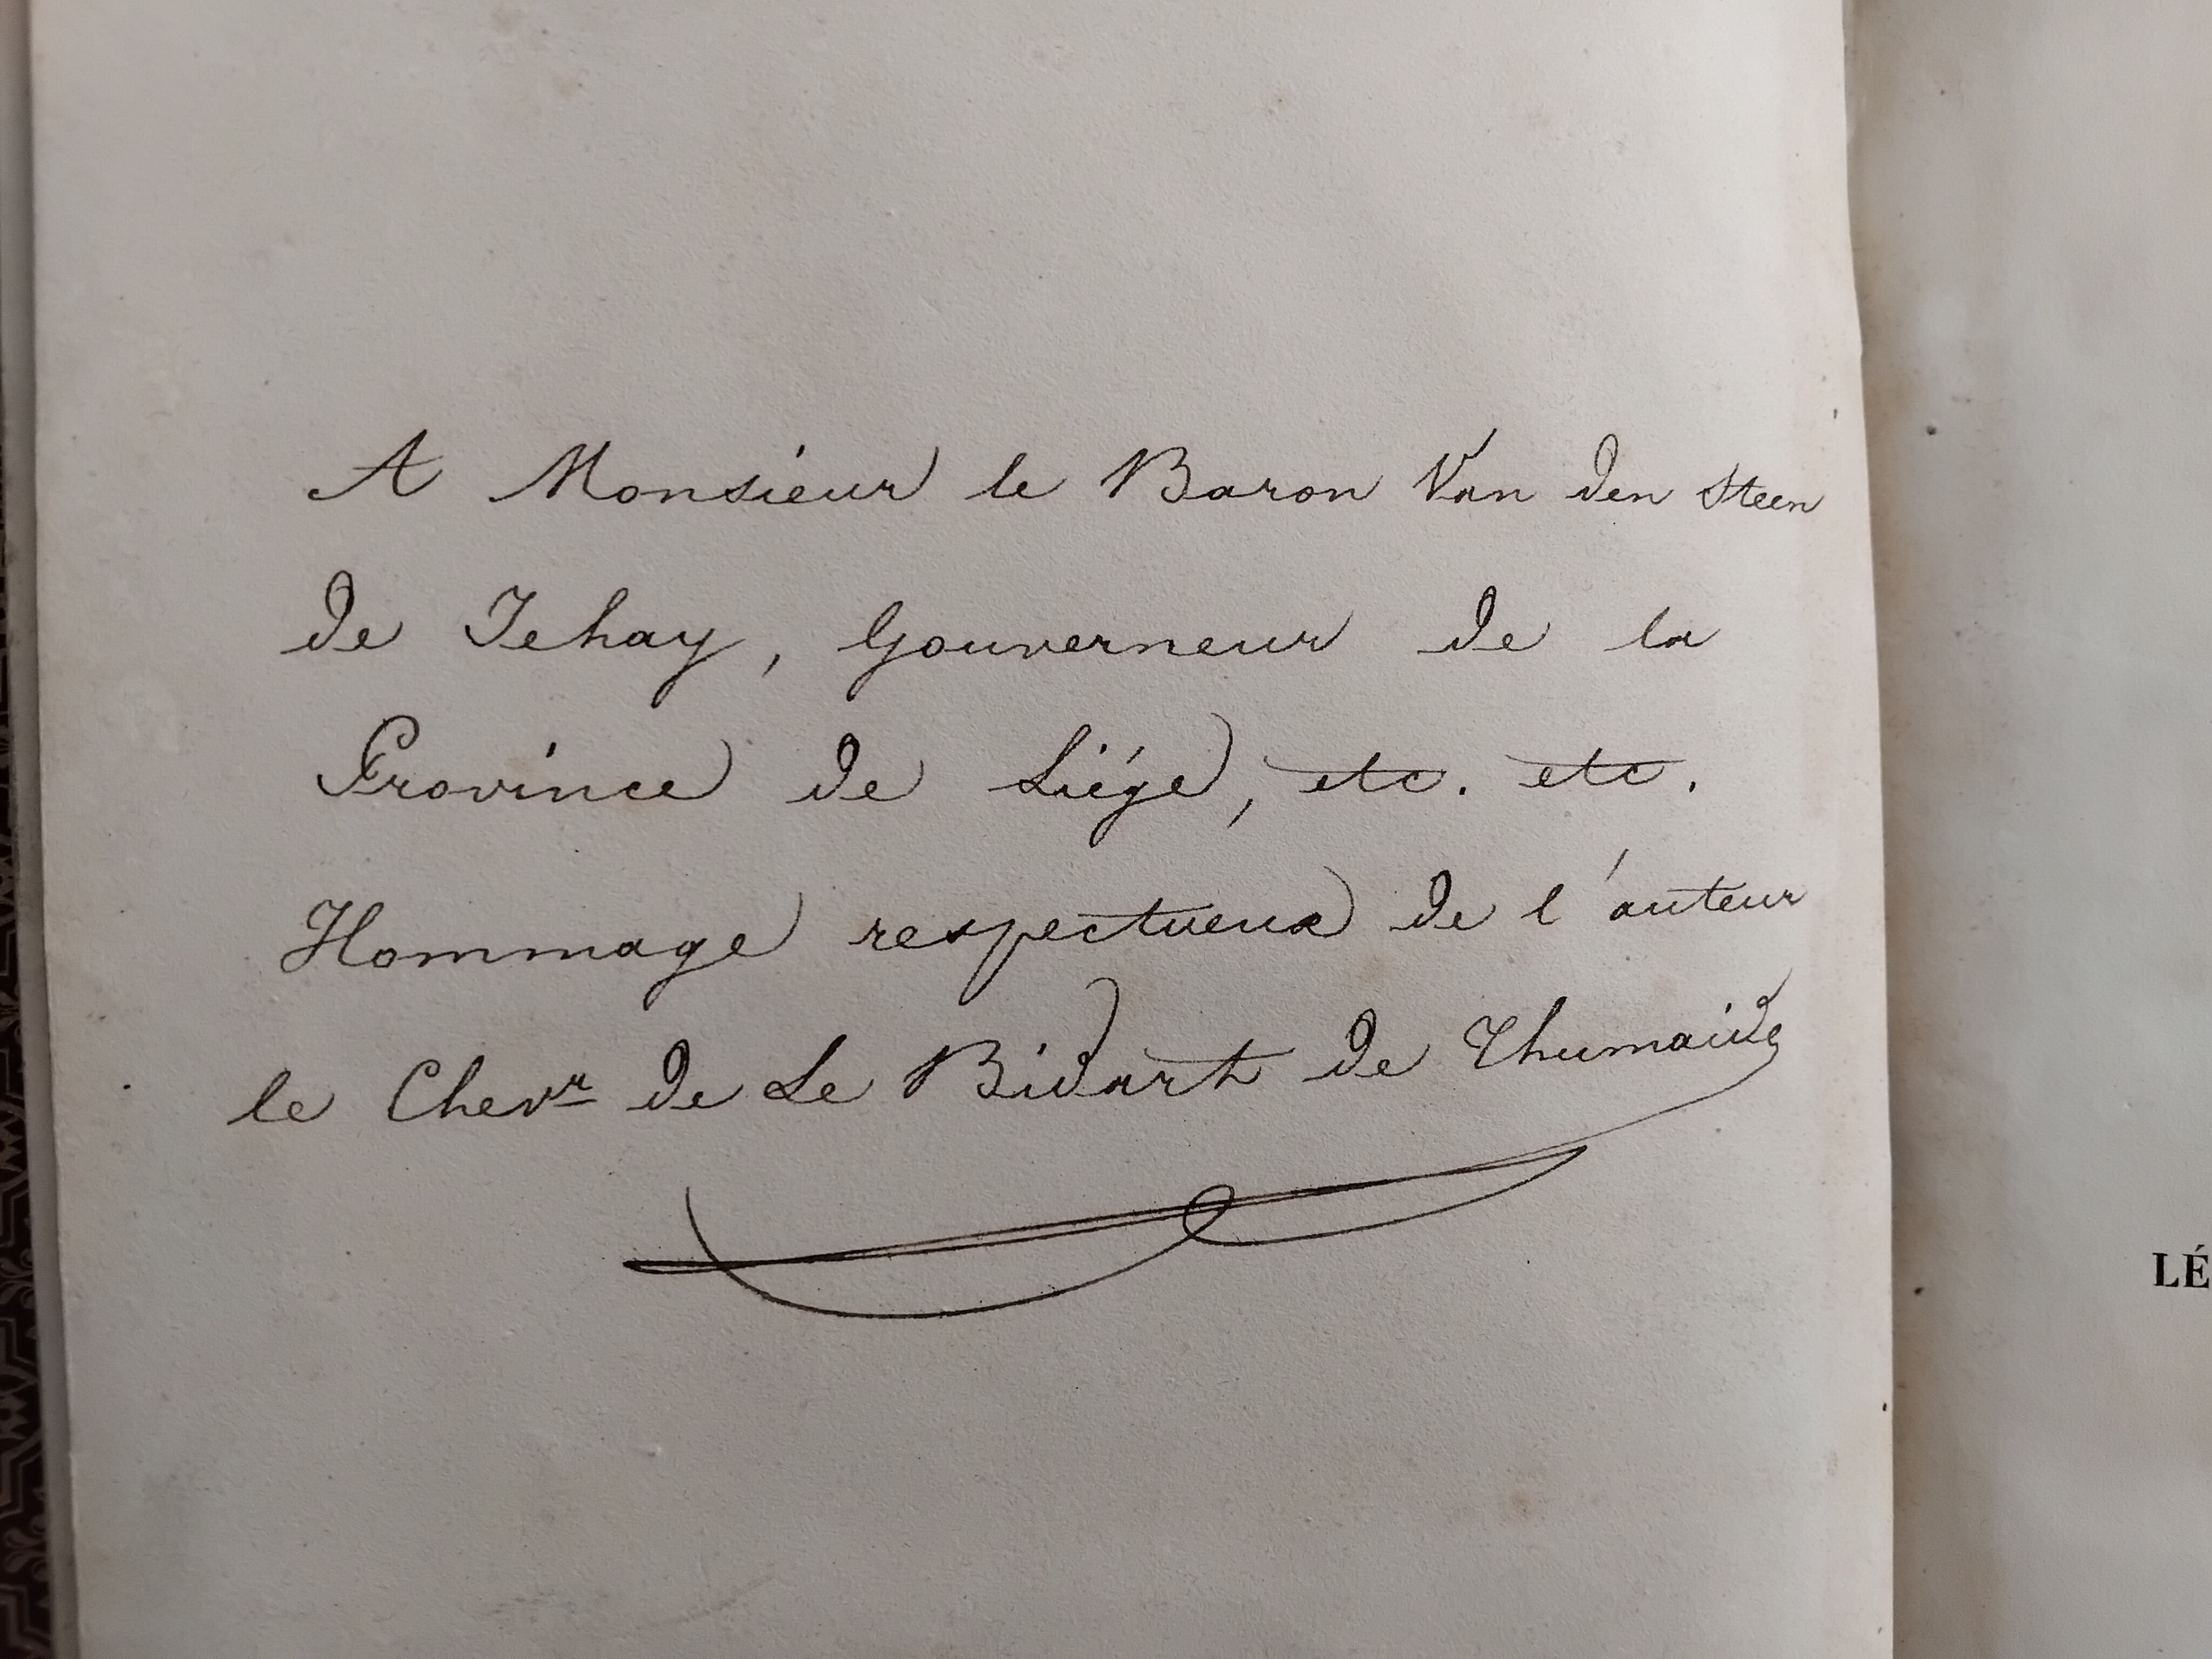 A Monsieur le Baron Van den Steen
de Jehay, Gouverneur de la
Province de Liége, etc. etc.
Hommage respectueux de l'auteur
le Chevr de Le Bidart de Thumaide
LÉ